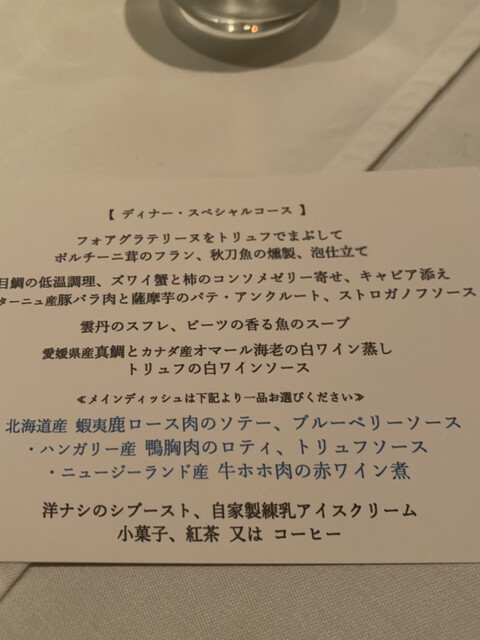 【 ディナー・スペシャルコース 】
フォアグラテリーヌをトリュフでまぶして
ポルチーニ茸のフラン、秋刀魚の燻製、泡仕立て
目鯛の低温調理、ズワイ蟹と柿のコンソメゼリー寄せ、キャビア添え
ターニュ産豚バラ肉と薩摩芋のパテ・アンクルート、ストロガノフソース
雲丹のスフレ、ビーツの香る魚のスープ
愛媛県産真鯛とカナダ産オマール海老の白ワイン蒸し
トリュフの白ワインソース
≪メインディッシュは下記より一品お選びください≫
北海道産 蝦夷鹿ロース肉のソテー、ブルーベリーソース
・ハンガリー産 鴨胸肉のロティ、トリュフソース
・ニュージーランド産 牛ホホ肉の赤ワイン煮
洋ナシのシブースト、自家製練乳アイスクリーム
小菓子、紅茶 又は コーヒー